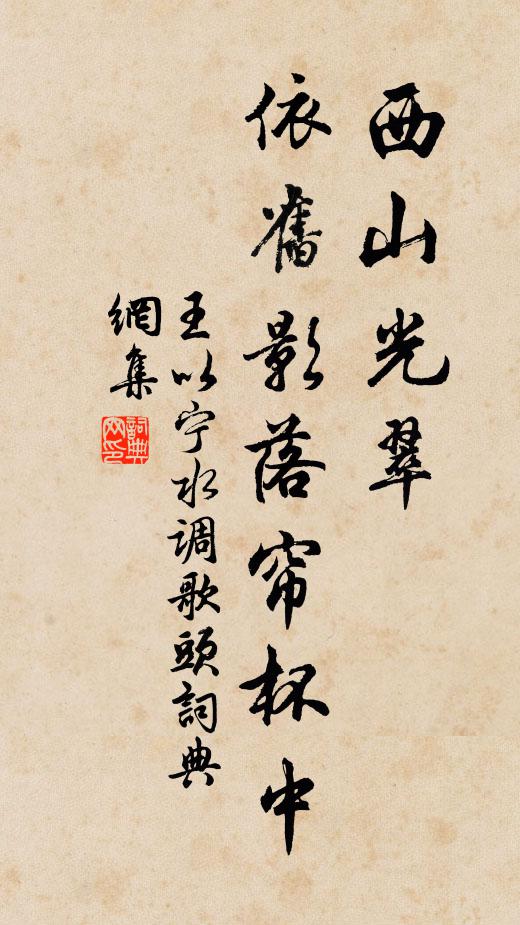 西山光翠
依舊影落帘杯中
王以宁水调歌頭詞典
網集
詞典
网印